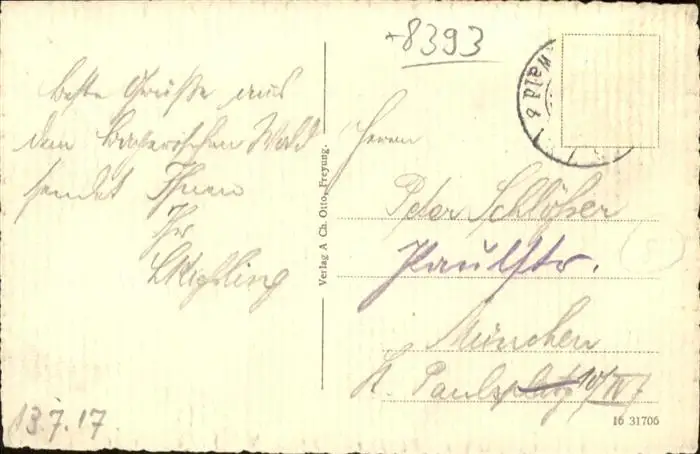 +8393
Wald b
Beste Grüße aus
dem bayerischen Wald
sendet Ihnen
Ihr
Herrn
Peter Schlößer
Paulstr.
München
St. Paulsplatz 10/IV
Verlag A Ch. Otto, Freyung.
13.7.17
16 31706